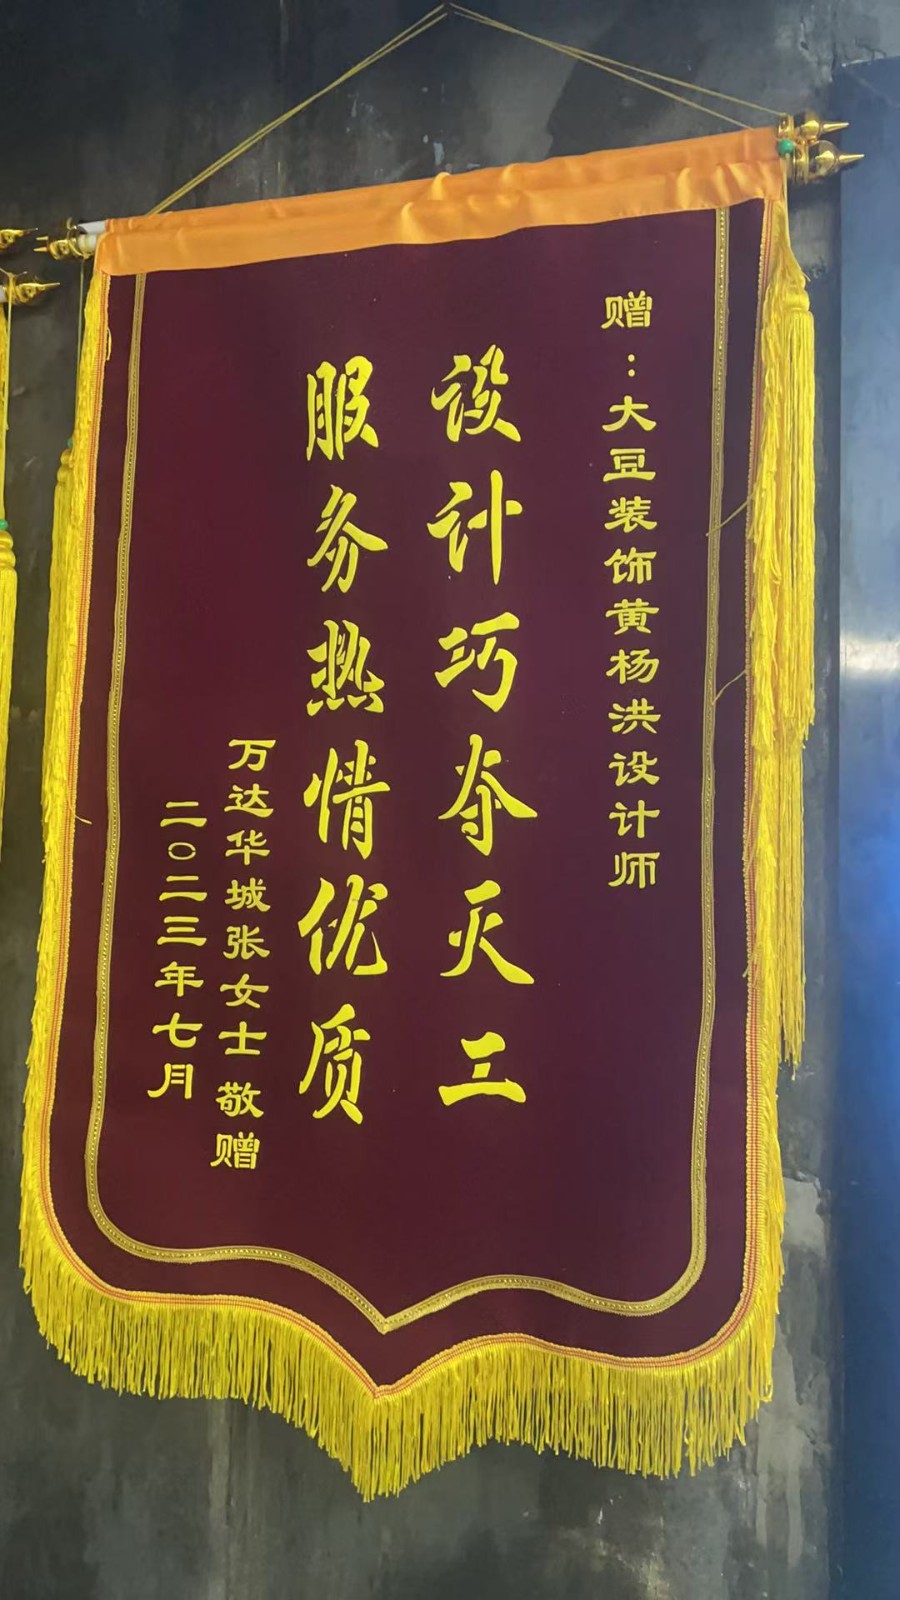 赠：大豆装饰黄杨洪设计师
设计巧夺灭三
服务热情优质
万达华城张女士敬赠
二〇二三年七月